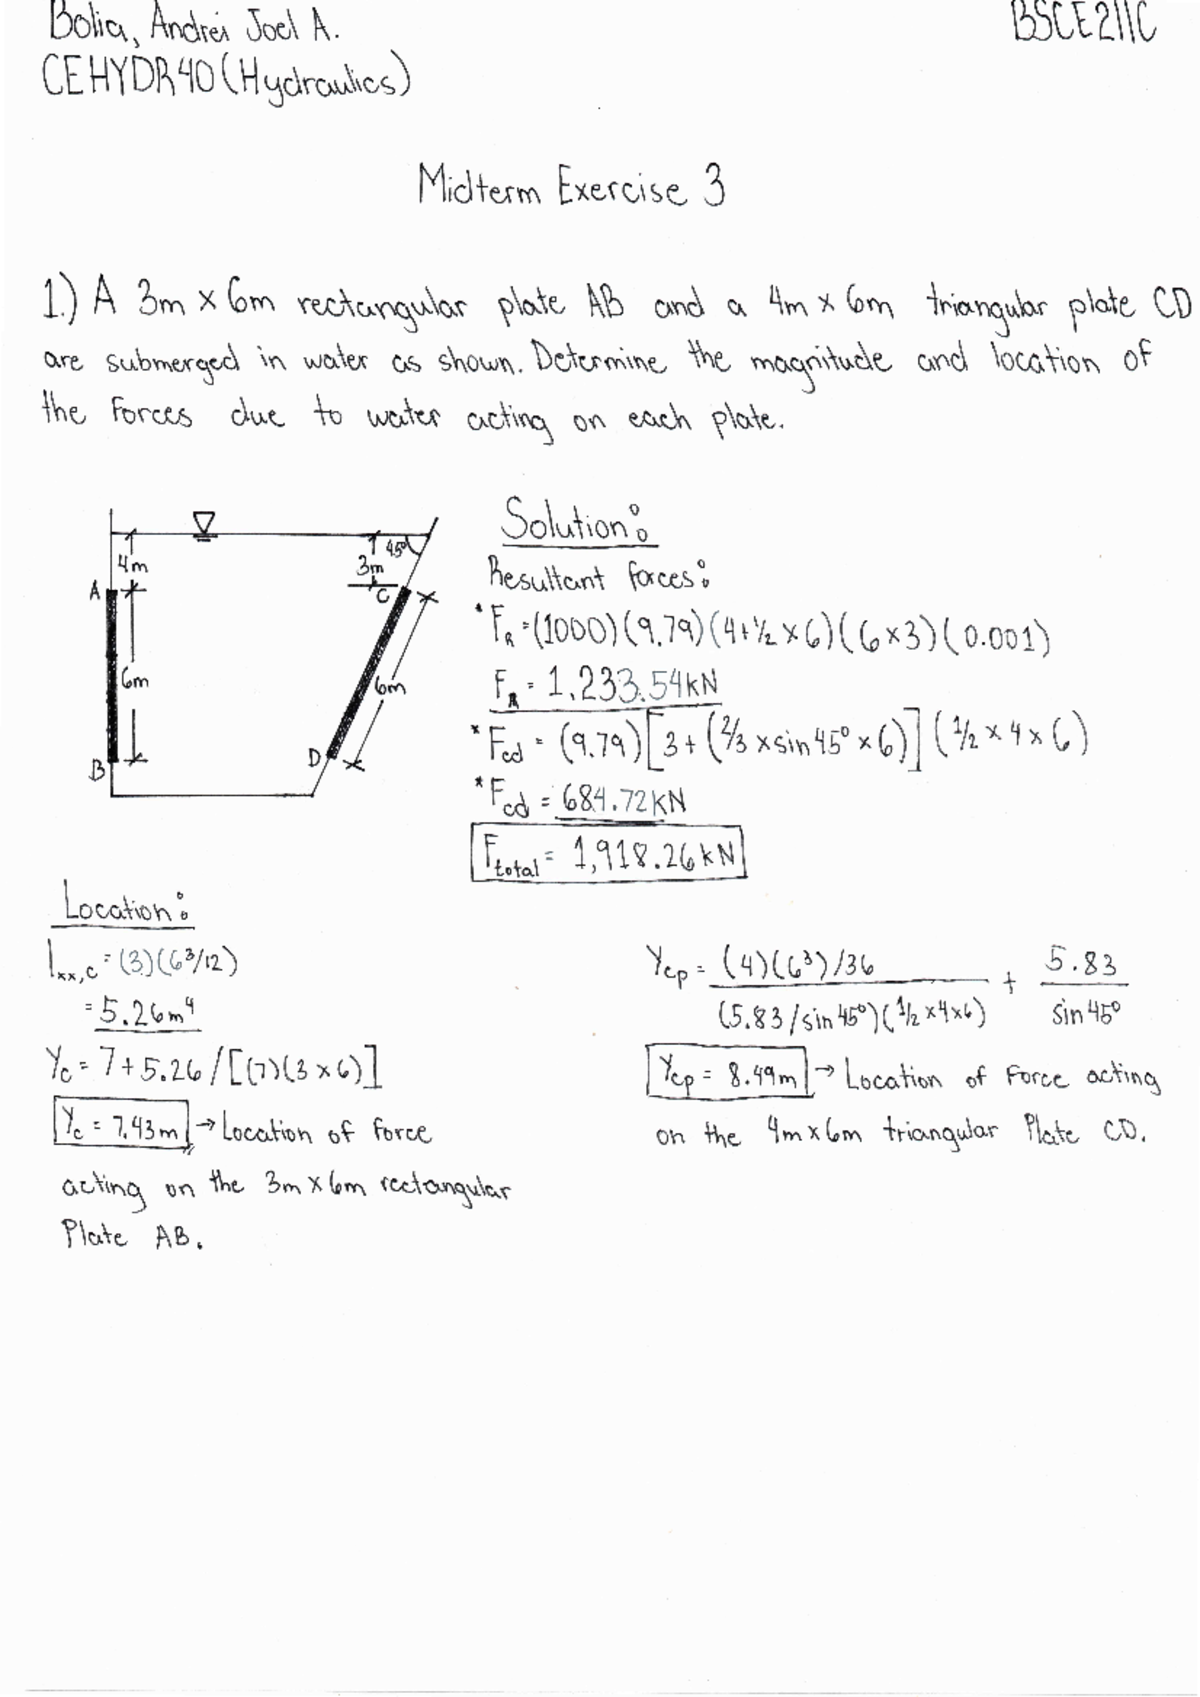 Bolia, Andrei Joel A.
BSCE211C
CEHYDR40 (Hydraulics)
Midterm Exercise 3
1.) A 3m x 6m rectangular plate AB and a 4m x 6m triangular plate CD
are submerged in water as shown. Determine the magnitude and location of
the forces due to water acting on each plate.
4m
A
6m
B
45°
3m
C
6m
D
Solution:
Resultant forces:
*F_R = (1000)(9.79)(4+1/2 x 6)(6x3)(0.001)
F_R = 1,233.54kN
*Fcd = (9.79)[3 + (2/3 x sin45° x 6)](1/2 x 4 x 6)
*Fcd = 684.72kN
Ftotal = 1,918.26kN
Location:
Ixx,c = (3)(6³/12)
= 5.26m⁴
Yc = 7+5.26/[(7)(3x6)]
Yc = 7.43m → Location of force
acting on the 3m x 6m rectangular
Plate AB.
Ycp = (4)(6³)/36 / (5.83/sin45°)(1/2x4x6) + 5.83 / sin45°
Ycp = 8.49m → Location of Force acting
on the 4mx6m triangular Plate CD.